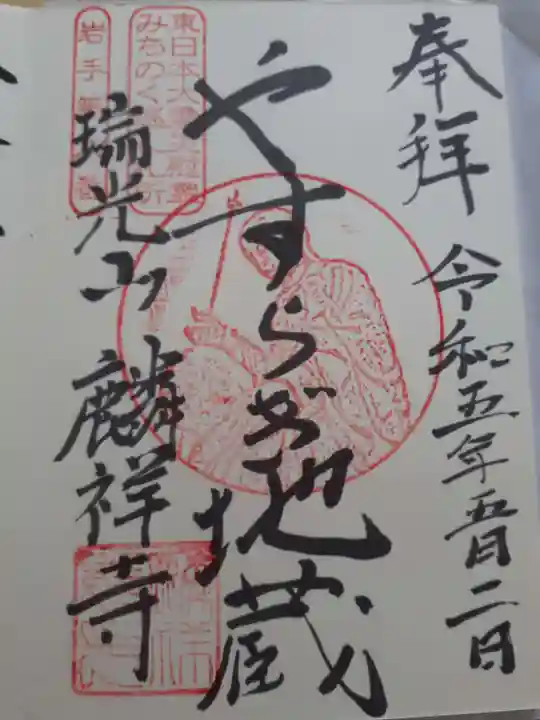 奉拝
令和五年五月二日
やすらぎ地蔵
東日本大震災慰霊
みちのく巡礼札所
岩手第
瑞光山 麟祥寺